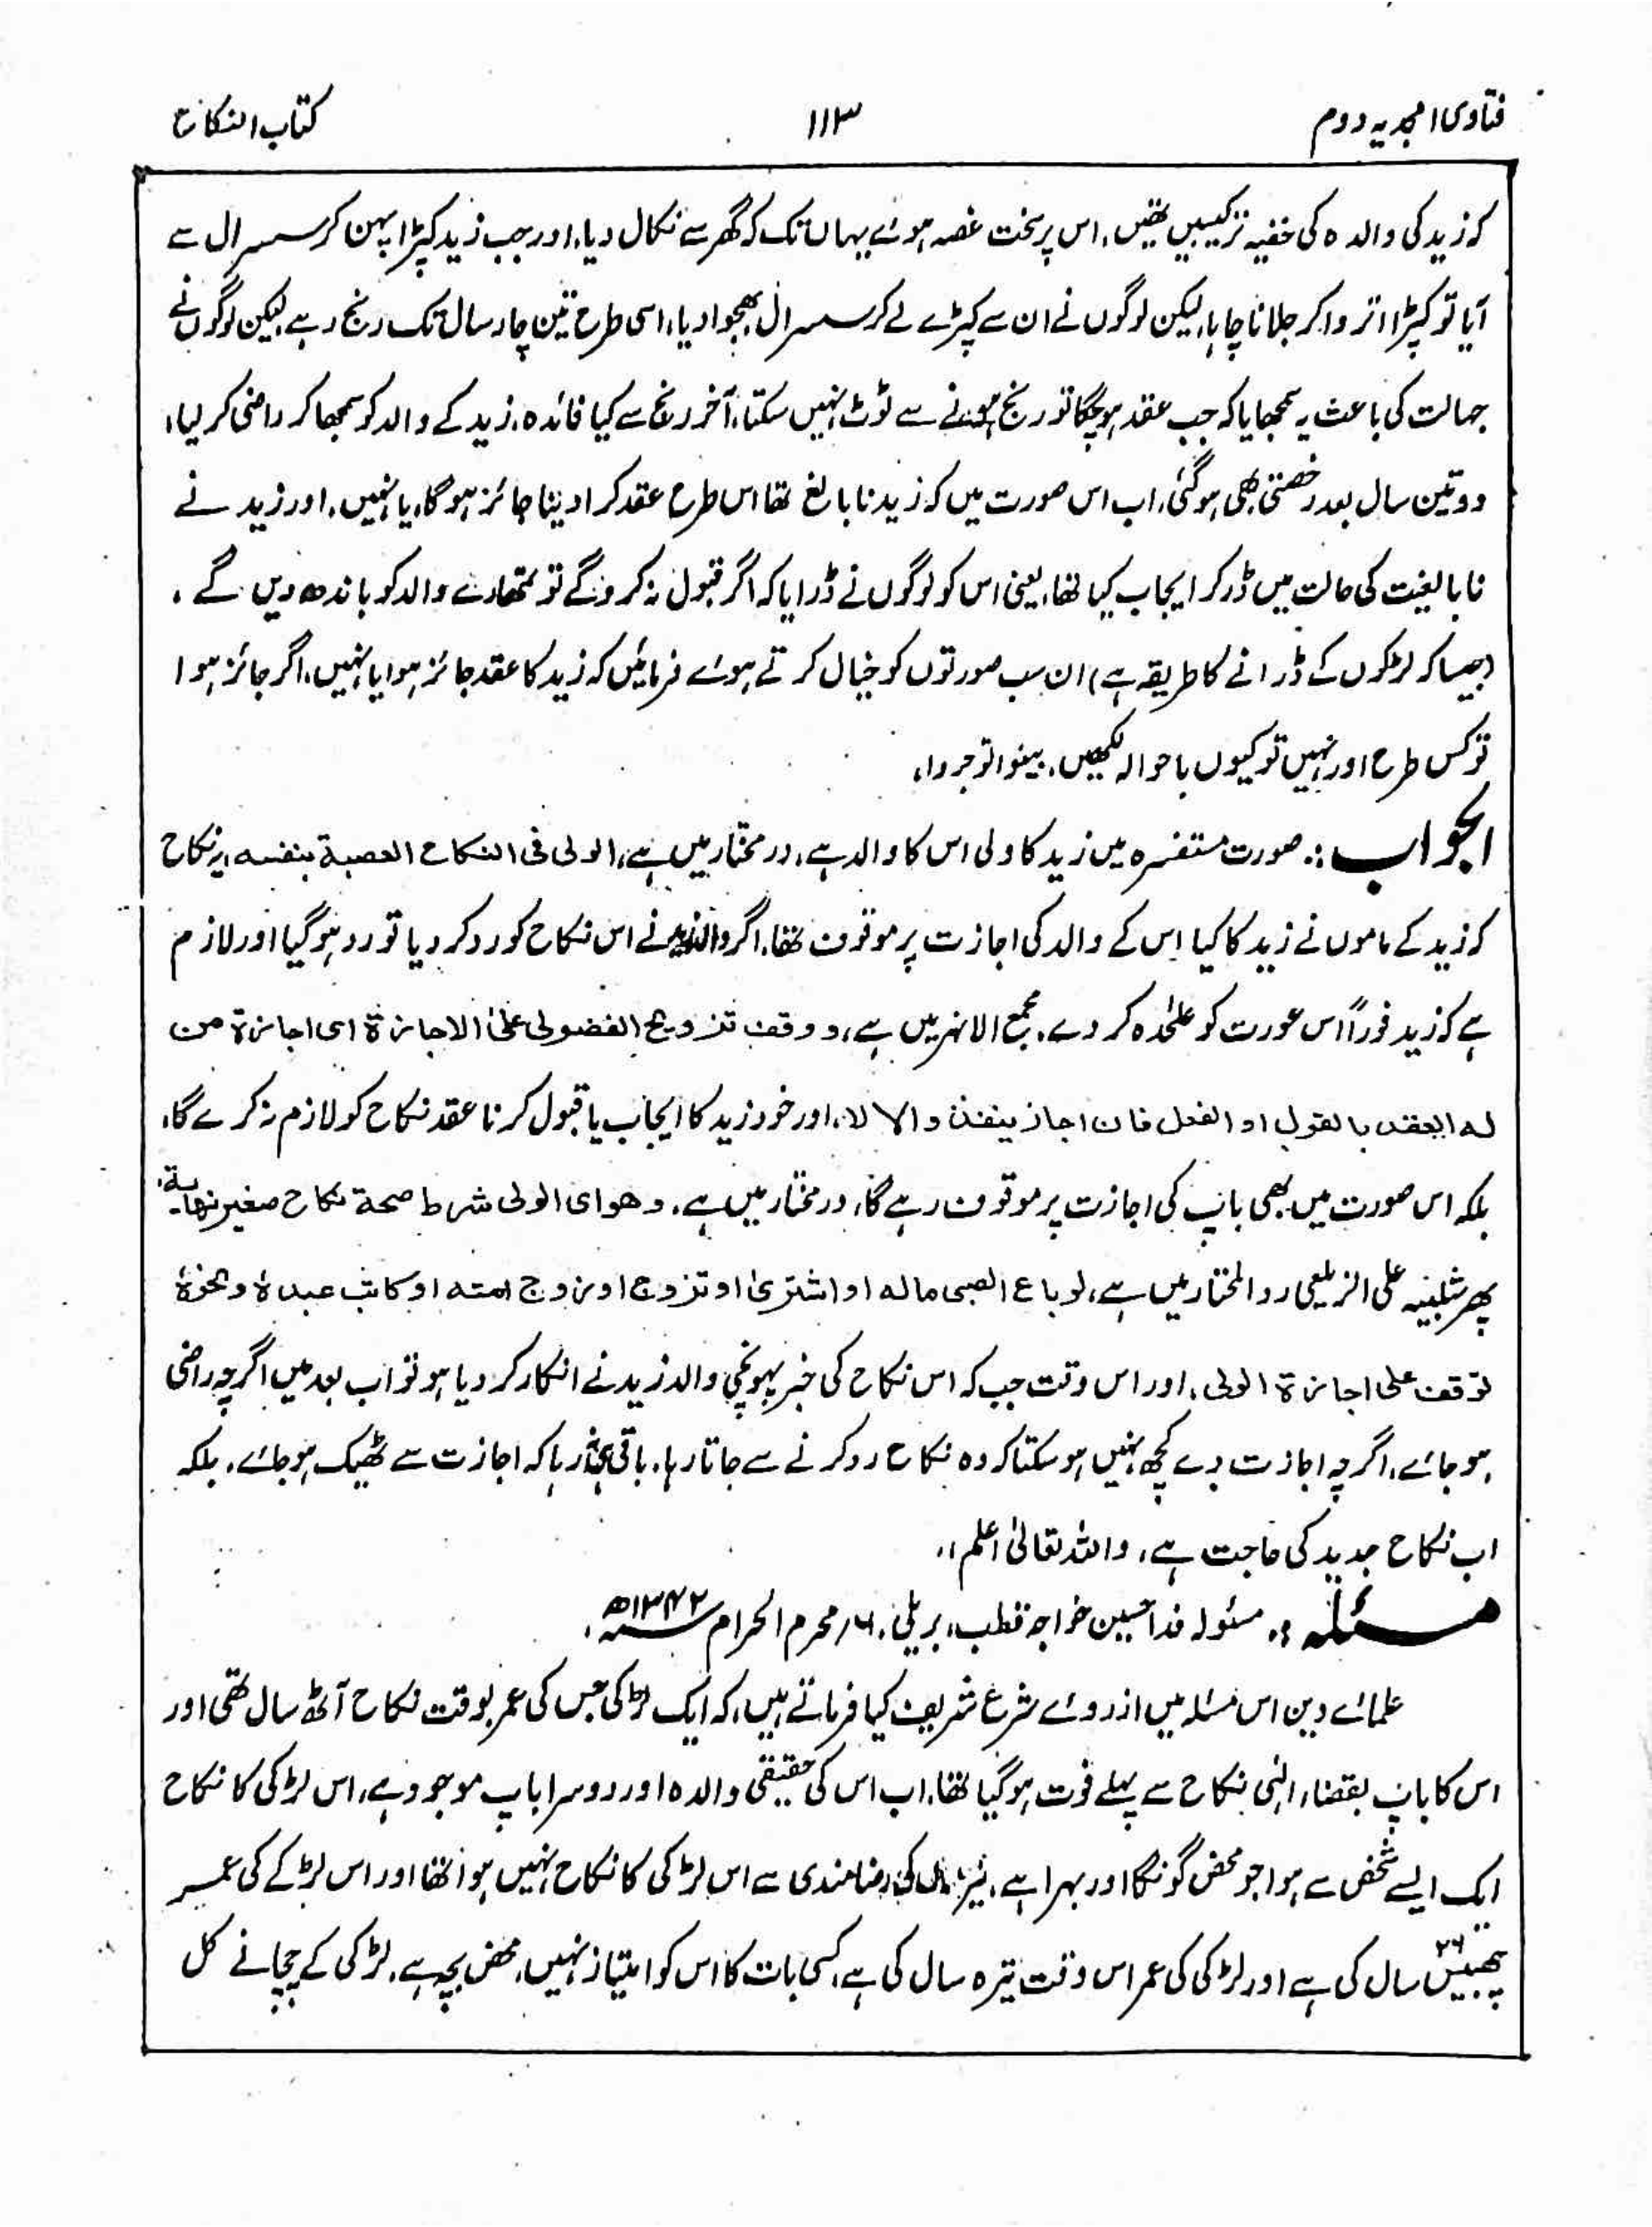 فتاوی امجدیہ دوم
۱۱۳
کتاب النکاح
کہ زید کی والدہ کی خفیہ ترکیبیں تھیں، اس پر سخت غصہ ہوئے یہاں تک کہ گھر سے نکال دیا، اور جب زید کپڑا پہن کر سسرال سے
آیا تو کپڑا اتروا کر جلانا چاہا، لیکن لوگوں نے ان سے کپڑے لے کر سسرال بھجوا دیا، اسی طرح تین چار سال تک رنج رہے، لیکن لوگوں نے
جہالت کی باعث یہ سمجھایا کہ جب عقد ہو چکا تو رنج ہونے سے ٹوٹ نہیں سکتا، آخر رنج سے کیا فائدہ، زید کے والد کو سمجھا کر راضی کر لیا،
دو تین سال بعد رخصتی بھی ہو گئی، اب اس صورت میں کہ زید نابالغ تھا اس طرح عقد کرا دینا جائز ہوگا، یا نہیں، اور زید نے
نابالغیت کی حالت میں ڈر کر ایجاب کیا تھا، یعنی اس کو لوگوں نے ڈرایا کہ اگر قبول نہ کروگے تو تمھارے والد کو باندھ دیں گے،
(جیسا کہ لڑکوں کے ڈرانے کا طریقہ ہے) ان سب صورتوں کو خیال کرتے ہوئے فرمائیں کہ زید کا عقد جائز ہوا یا نہیں، اگر جائز ہوا
تو کس طرح اور نہیں تو کیوں باحوالہ لکھیں، بینوا توجروا،
الجواب :. صورت مستفسرہ میں زید کا ولی اس کا والد ہے، در مختار میں ہے، الولی فی النکاح العصبة بنفسه، یہ نکاح
کہ زید کے ماموں نے زید کا کیا اس کے والد کی اجازت پر موقوف تھا، اگر والد زید نے اس نکاح کو رد کر دیا تو رد ہو گیا اور لازم
ہے کہ زید فوراً اس عورت کو علٰحدہ کر دے، مجمع الانہر میں ہے، ووقف تزویج الفضولی علی الاجازة ای اجازة من
له العقد بالقول او الفعل فان اجاز ینفذ والا لا، اور خود زید کا ایجاب یا قبول کرنا عقد نکاح کو لازم نہ کرے گا،
بلکہ اس صورت میں بھی باپ کی اجازت پر موقوف رہے گا، در مختار میں ہے، وهو ای الولی شرط صحة نکاح صغیر نهایة،
پھر شلبیہ علی الزیلعی رد المختار میں ہے، لو باع الصبی ماله او اشتریٰ او تزوج او زوج امته او کاتب عبدہٗ ونحوہٗ
توقف علی اجازة الولی، اور اس وقت جب کہ اس نکاح کی خبر پہونچی والد زید نے انکار کر دیا ہو تو اب بعد میں اگرچہ راضی
ہو جائے، اگرچہ اجازت دے کچھ نہیں ہو سکتا کہ وہ نکاح رد کرنے سے جاتا رہا، باقی ہی نہ رہا کہ اجازت سے ٹھیک ہو جائے، بلکہ
اب نکاح جدید کی حاجت ہے، واللہ تعالیٰ اعلم،،
مسئلہ :. مسئولہ فدا حسین خواجہ قطب، بریلی، ۱۶/ محرم الحرام ۱۳۴۲ھ،
علمائے دین اس مسئلہ میں ازروئے شرع شریف کیا فرماتے ہیں، کہ ایک لڑکی جس کی عمر بوقت نکاح آٹھ سال تھی اور
اس کا باپ بقضاء الٰہی نکاح سے پہلے فوت ہو گیا تھا، اب اس کی حقیقی والدہ اور دوسرا باپ موجود ہے، اس لڑکی کا نکاح
ایک ایسے شخص سے ہوا جو محض گونگا اور بہرا ہے، نیز ماں کی رضامندی سے اس لڑکی کا نکاح نہیں ہوا تھا اور اس لڑکے کی عمر
چھبیس ۲۶ سال کی ہے اور لڑکی کی عمر اس وقت تیرہ سال کی ہے، کسی بات کا اس کو امتیاز نہیں، محض بچہ ہے، لڑکی کے چچا نے کل